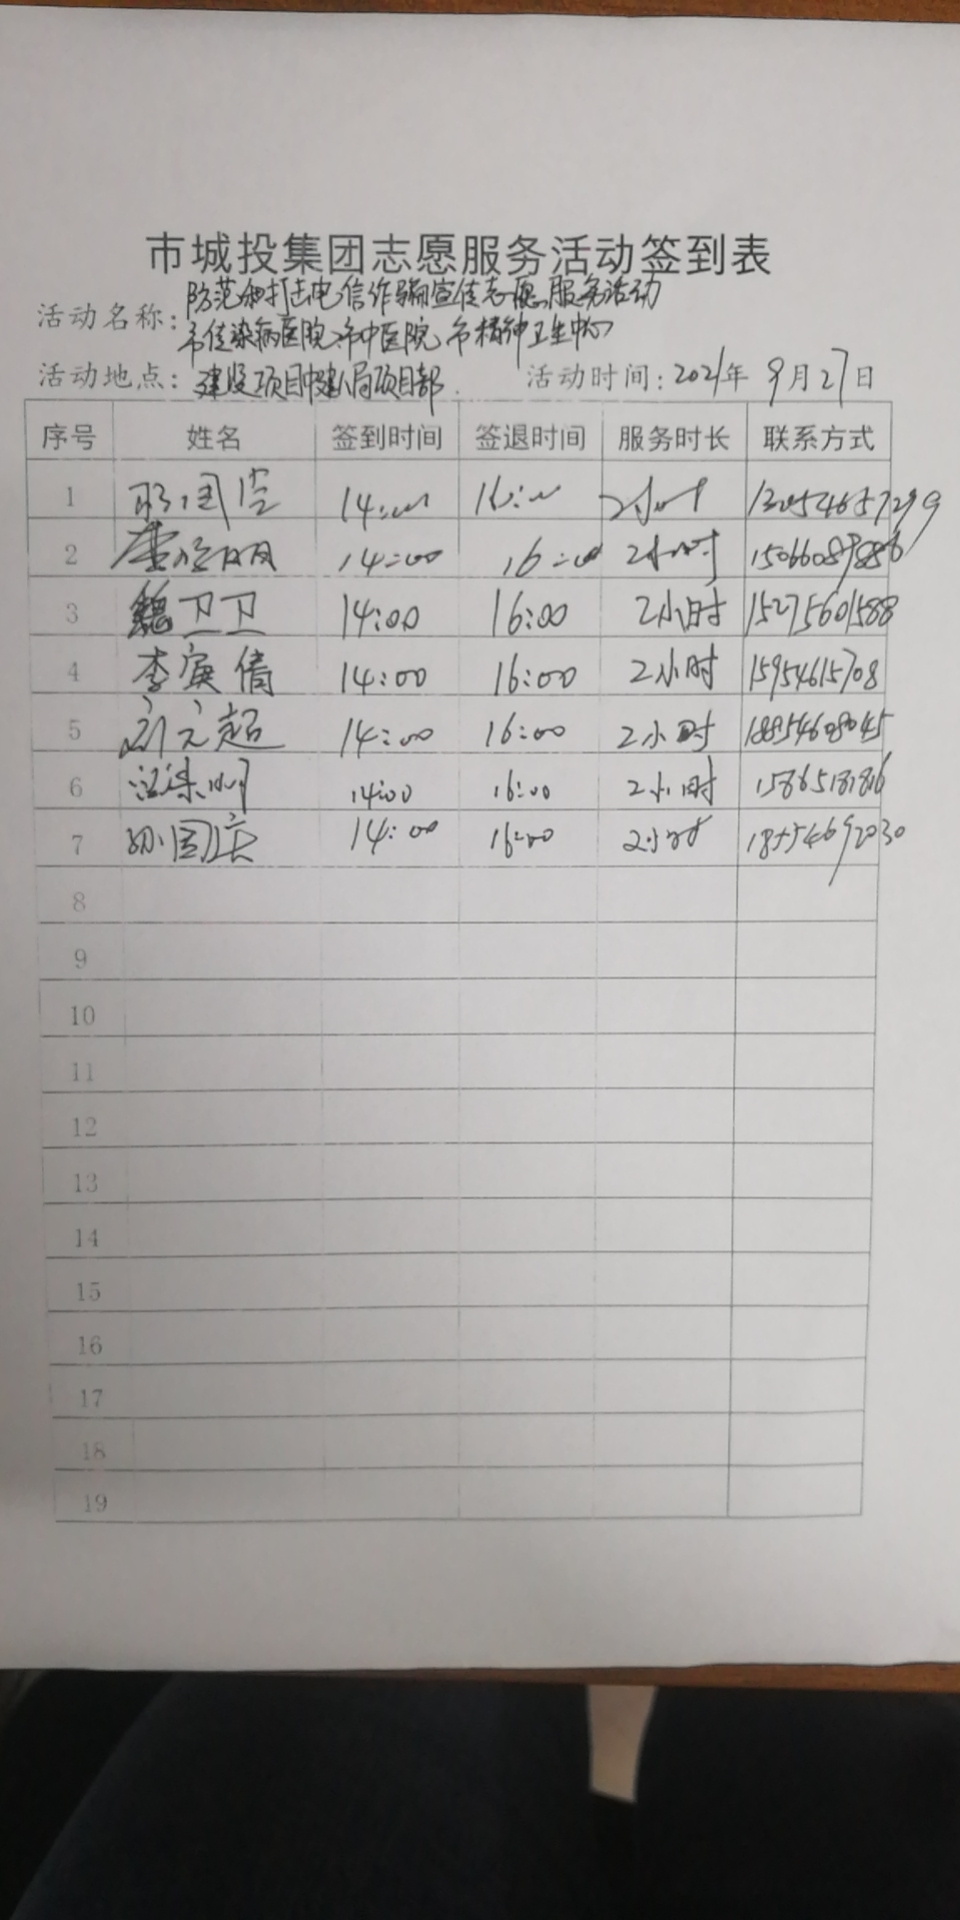 市城投集团志愿服务活动签到表
活动名称: 防范和打击电信诈骗宣传志愿服务活动
市传染病医院、市中医院、市精神卫生中心
活动地点: 建设项目中建八局项目部. 活动时间: 2021年 9月27日
序号 姓名 签到时间 签退时间 服务时长 联系方式
1 14:00 16:00 2小时
2 14:00 16:00 2小时 15066089886
3 魏卫卫 14:00 16:00 2小时 15275601588
4 李寅倩 14:00 16:00 2小时 15954615708
5 超 14:00 16:00 2小时 18954608045
6 14:00 16:00 2小时 15865181816
7 孙国庆 14:00 16:00 2小时 18554692030
8
9
10
11
12
13
14
15
16
17
18
19